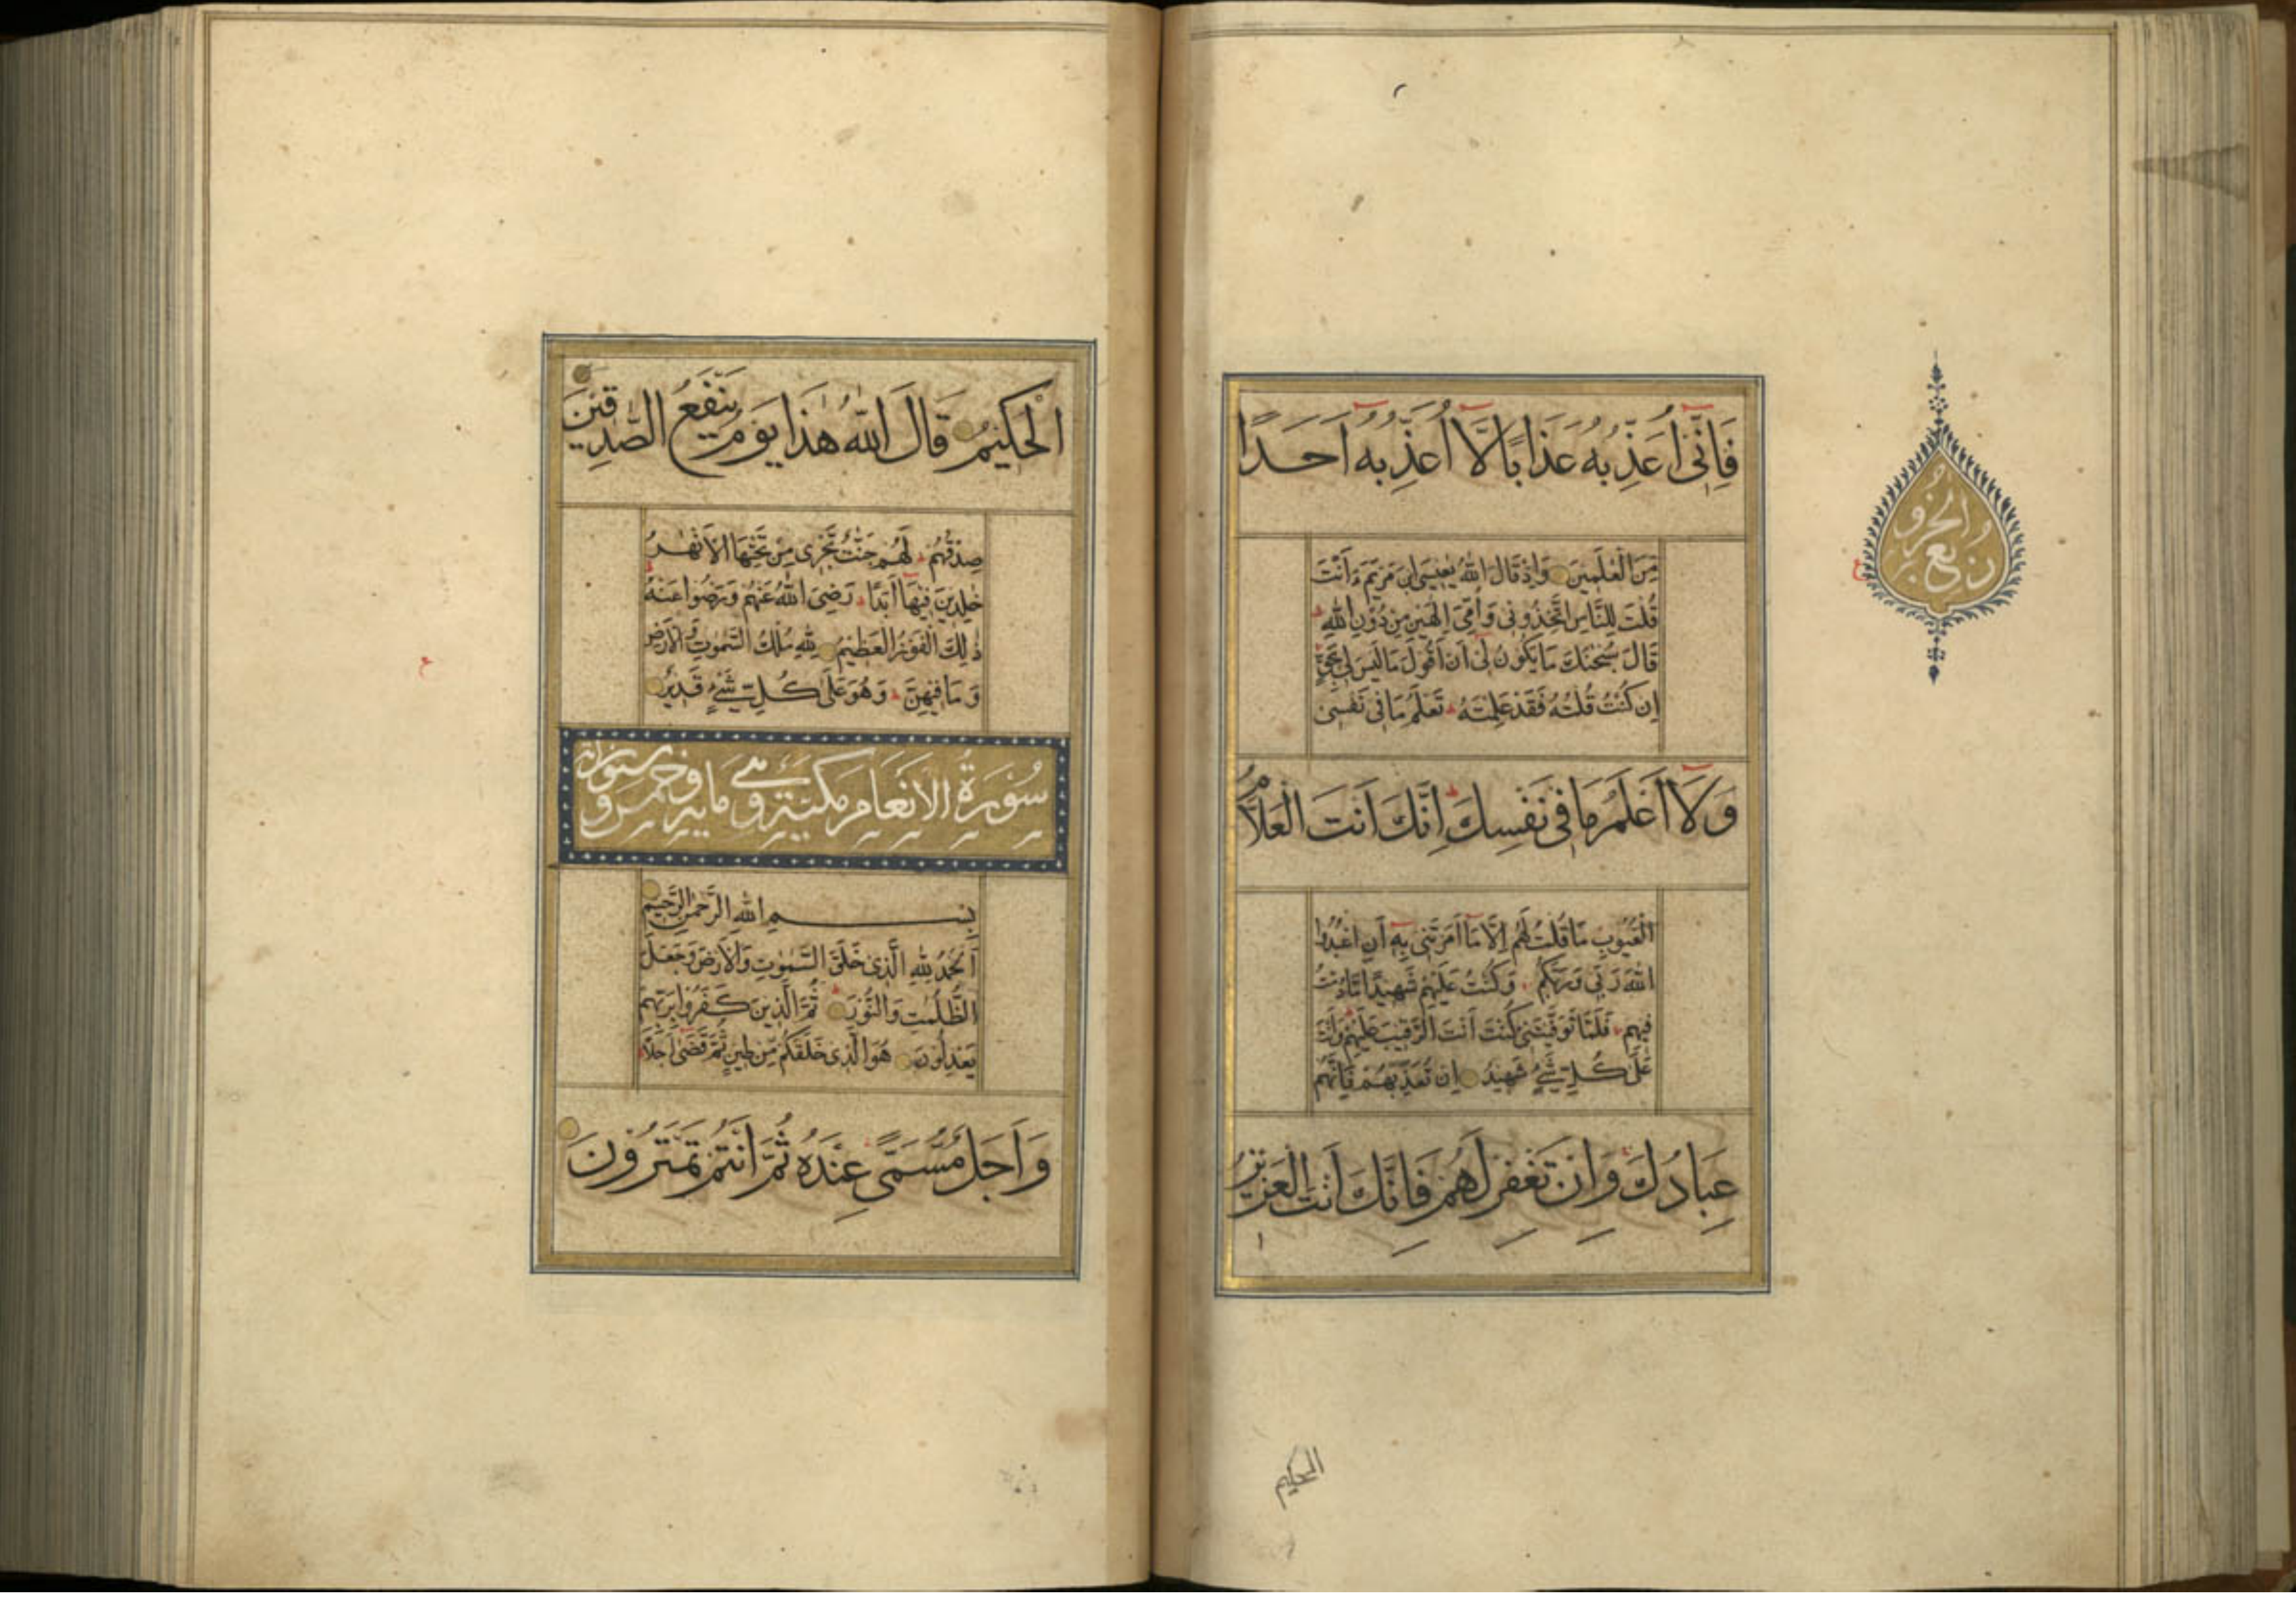 فَاِنِّیٓ اُعَذِّبُهُ عَذَابًا لَّآ اُعَذِّبُهُٓ اَحَدًا
مِنَ الْعٰلَمِیْنَ وَاِذْ قَالَ اللّٰهُ یٰعِیْسَی ابْنَ مَرْیَمَ ءَاَنْتَ
قُلْتَ لِلنَّاسِ اتَّخِذُوْنِیْ وَاُمِّیَ اِلٰهَیْنِ مِنْ دُوْنِ اللّٰهِ ط
قَالَ سُبْحٰنَكَ مَا یَكُوْنُ لِیْٓ اَنْ اَقُوْلَ مَا لَیْسَ لِیْ بِحَقٍّ
اِنْ كُنْتُ قُلْتُهُ فَقَدْ عَلِمْتَهُ ط تَعْلَمُ مَا فِیْ نَفْسِیْ
وَلَآ اَعْلَمُ مَا فِیْ نَفْسِكَ ط اِنَّكَ اَنْتَ الْعَلَّامُ
الْغُیُوْبِ مَا قُلْتُ لَهُمْ اِلَّا مَآ اَمَرْتَنِیْ بِهٖٓ اَنِ اعْبُدُوا
اللّٰهَ رَبِّیْ وَرَبَّكُمْ وَكُنْتُ عَلَیْهِمْ شَهِیْدًا مَّا دُمْتُ
فِیْهِمْ فَلَمَّا تَوَفَّیْتَنِیْ كُنْتَ اَنْتَ الرَّقِیْبَ عَلَیْهِمْ وَاَنْتَ
عَلٰی كُلِّ شَیْءٍ شَهِیْدٌ اِنْ تُعَذِّبْهُمْ فَاِنَّهُمْ
عِبَادُكَ وَاِنْ تَغْفِرْ لَهُمْ فَاِنَّكَ اَنْتَ الْعَزِیْزُ
الحكیم
ع
الْحَكِیْمُ قَالَ اللّٰهُ هٰذَا یَوْمُ یَنْفَعُ الصّٰدِقِیْنَ
صِدْقُهُمْ ط لَهُمْ جَنّٰتٌ تَجْرِیْ مِنْ تَحْتِهَا الْاَنْهٰرُ
خٰلِدِیْنَ فِیْهَآ اَبَدًا ط رَضِیَ اللّٰهُ عَنْهُمْ وَرَضُوْا عَنْهُ ط
ذٰلِكَ الْفَوْزُ الْعَظِیْمُ لِلّٰهِ مُلْكُ السَّمٰوٰتِ وَالْاَرْضِ
وَمَا فِیْهِنَّ ط وَهُوَ عَلٰی كُلِّ شَیْءٍ قَدِیْرٌ
سُوْرَةُ الْاَنْعَامِ مَكِّیَّة وَهِیَ مایه وخمس وستون ایة
بِسْمِ اللّٰهِ الرَّحْمٰنِ الرَّحِیْمِ
اَلْحَمْدُ لِلّٰهِ الَّذِیْ خَلَقَ السَّمٰوٰتِ وَالْاَرْضَ وَجَعَلَ
الظُّلُمٰتِ وَالنُّوْرَ ط ثُمَّ الَّذِیْنَ كَفَرُوْا بِرَبِّهِمْ
یَعْدِلُوْنَ هُوَ الَّذِیْ خَلَقَكُمْ مِّنْ طِیْنٍ ثُمَّ قَضٰٓی اَجَلًا ط
وَاَجَلٌ مُّسَمًّی عِنْدَهُ ثُمَّ اَنْتُمْ تَمْتَرُوْنَ
ع